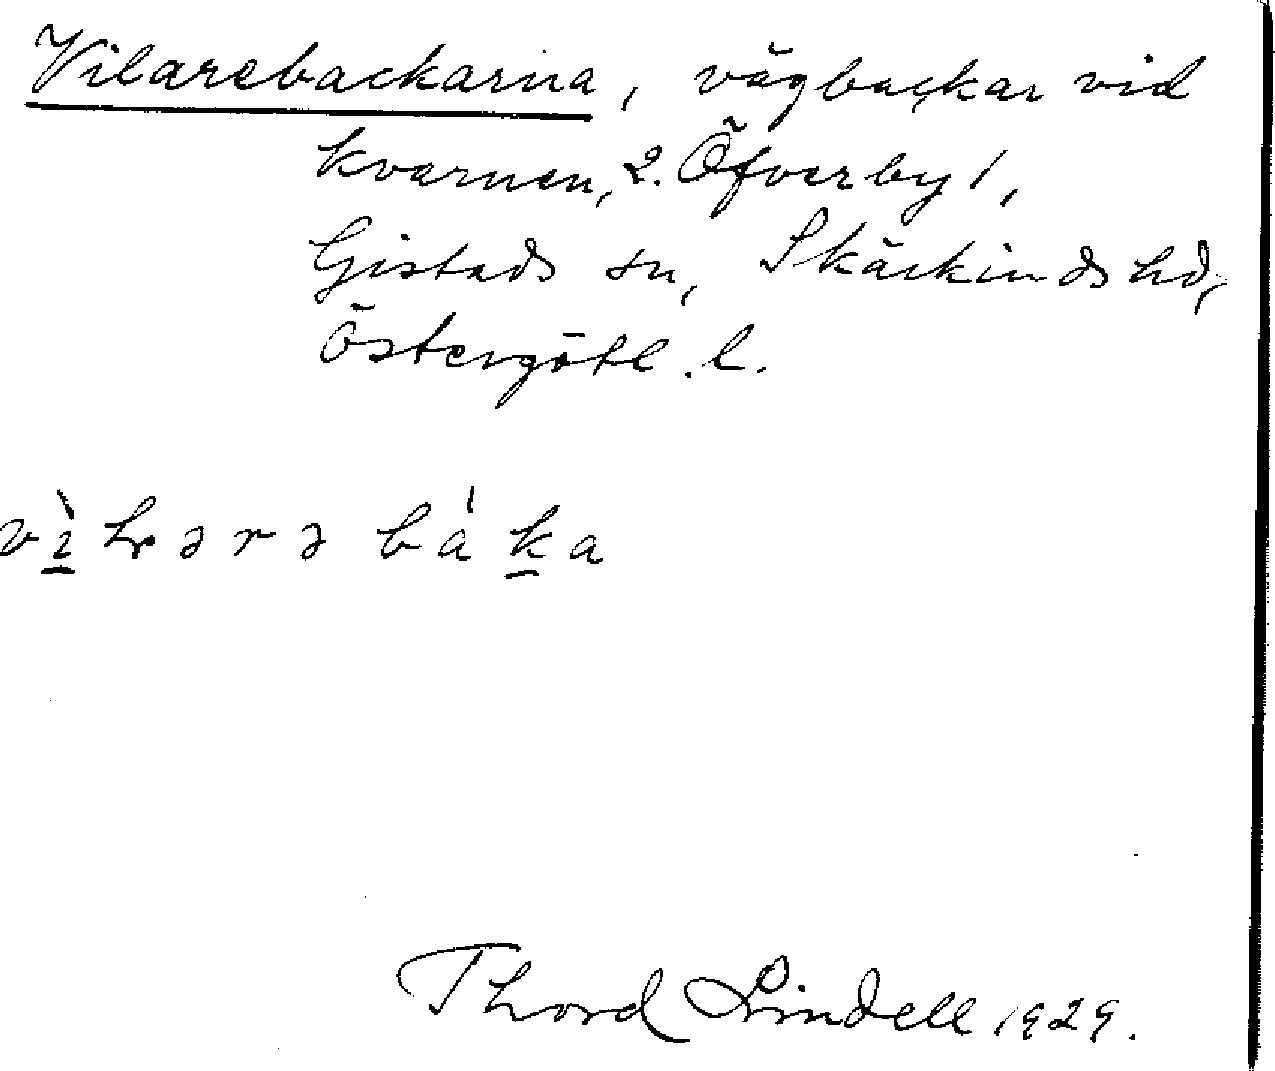 Vilarebackarna, vägbackar vid
kvarnen, 2. Öfverby 1,
Gistads sn, Skärkinds hd,
Östergötl. l.
Thord Lindell 1929.